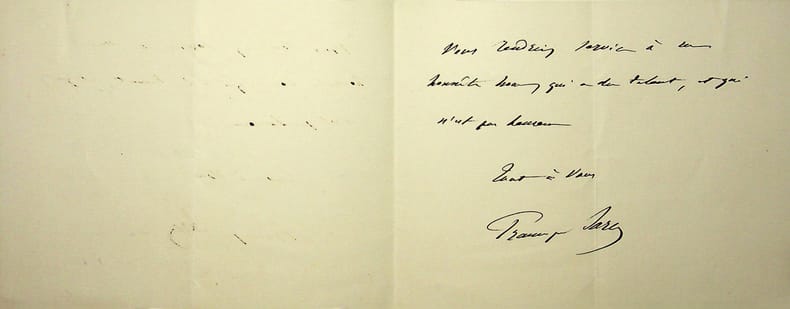 Vous rendrez service à un
honnête homme qui a du talent, et qui
n'est pas heureux
Tout à Vous